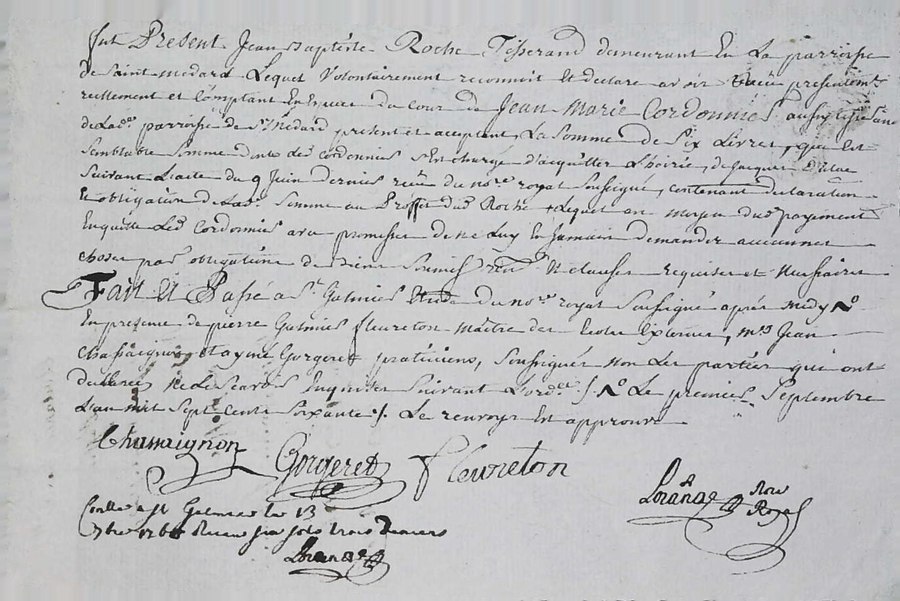 fut Présent Jean Baptiste Roche Tisserand demeurant En La parroisse
de Saint medard Lequel Volontairement reconnoit et declare avoir Reçu presentemt
reellement et Comptant En Especes du cour de Jean Marie Cordonnier aussy tisserand
de Lade parroisse de St Médard present et acceptant La Somme de Six Livres, que Est
semblable somme dont Led Cordonnier s'Est chargé d'acquitter à hoirie de Jacques
Suivant L'acte du 9 Juin Dernier reçu du nore royal Soussigné, contenant declaration
et obligation de Lade Somme au Proffit dud Roche Lequel au moyen dud payement
En quitte Led Cordonnier avec promesse de ne Luy En Jamais demander aucunnes
choses par obligations de biens Soumis rend et clauses requises et necessaires
Fait Et Passé a St Galmier Etude du nore royal Soussigné après midy
En presence de pierre Galmier fleureton maître des Ecoles Externes, Me Jean
Chassaignon et aymé Gorgeret praticiens, Soussignés Non Les parties qui ont
declarés ne Le Scavoir Enquises Suivant L'ordce Le premier Septembre
L'an mil Sept Cents Soixante Le renvoys Est approuvé
Chassaignon Gorgeret Fleureton
Lorange Nore Royal
Conllé a St Galmier le 13
7bre 1760 Reçu six sols trois deniers
Lorange